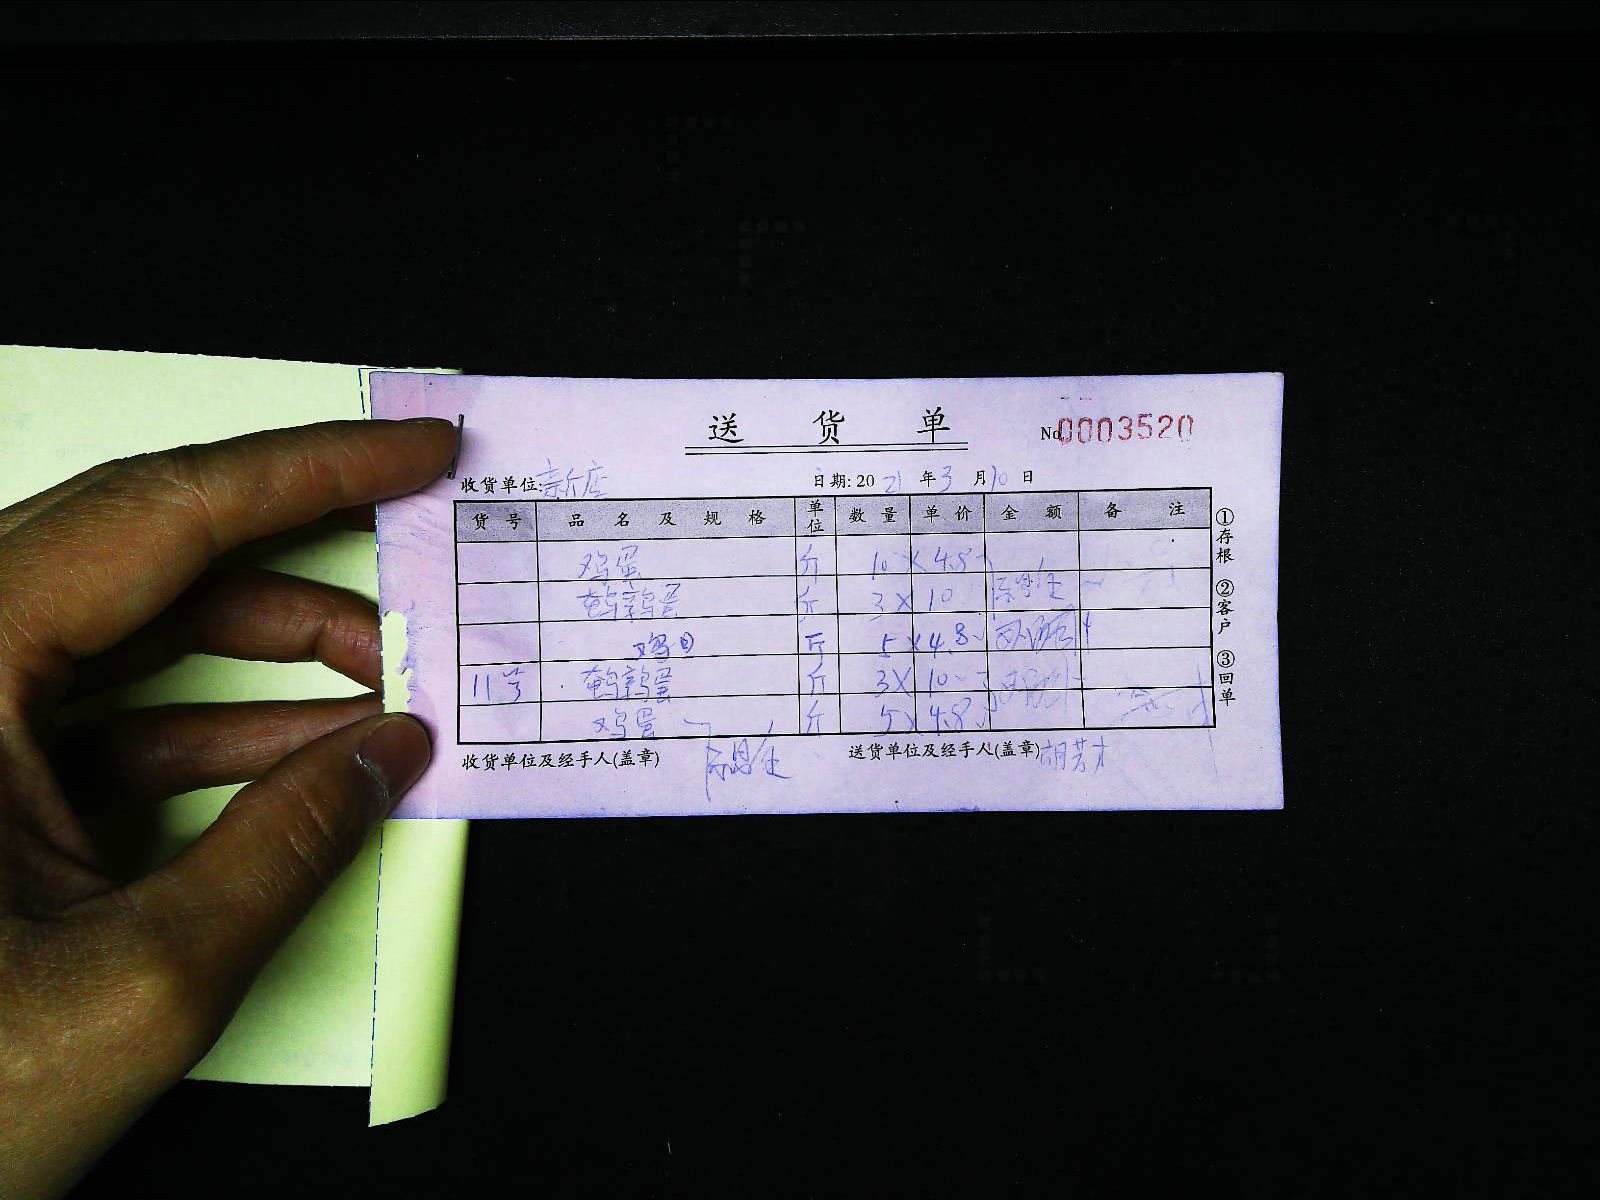 送 货 单
No.0003520
收货单位:新店 日期:2021年3月10日
货号 品名及规格 单位 数量 单价 金额 备注
鸡蛋 斤 10×4.8
鹌鹑蛋 斤 3×10
鸡 斤 5×4.8
11号 鹌鹑蛋 斤 3×10
鸡蛋 斤 5×4.8
收货单位及经手人(盖章) 送货单位及经手人(盖章)胡芳才
①存根 ②客户 ③回单